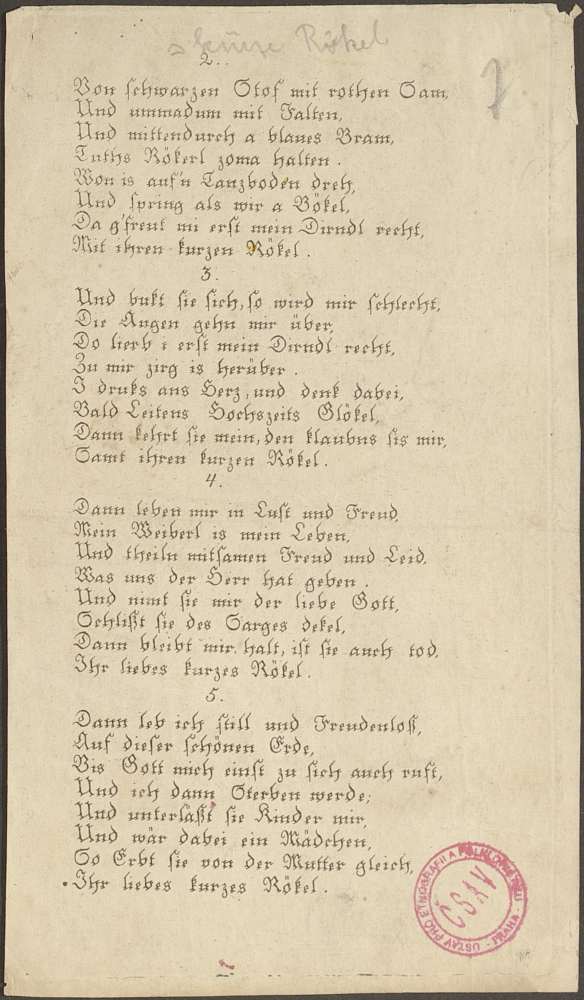 s' kurze Rökel
2.
Von schwarzen Stof mit rothen Sam,
Und ummadum mit Falten,
Und mittendurch a blaues Bram,
Tuths Rökerl zoma halten.
Won is auf'n Tanzboden dreh,
Und spring als wir a Bökel,
Da g'freut mi erst mein Dirndl recht,
Mit ihren kurzen Rökel.
3.
Und bukt sie sich, so wird mir schlecht,
Die Augen gehn mir über,
Do lierb i erst mein Dirndl recht,
Zu mir zirg is herüber.
I druks ans Herz, und denk dabei,
Bald Leitens Hochszeits Glökel,
Dann kehrt sie mein, den klaubns sis mir,
Samt ihren kurzen Rökel.
4.
Dann leben mir in Lust und Freud,
Mein Weiberl is mein Leben,
Und theiln mitsamen Freud und Leid.
Was uns der Herr hat geben.
Und nimt sie mir der liebe Gott,
Schlißt sie des Sarges dekel,
Dann bleibt mir halt, ist sie auch tod,
Ihr liebes kurzes Rökel.
5.
Dann leb ich still und Freudenloß,
Auf dieser schönen Erde,
Bis Gott mich einst zu sich auch ruft,
Und ich dann Sterben werde;
Und unterläßt sie Kinder mir,
Und wär dabei ein Mädchen,
So Erbt sie von der Mutter gleich,
Ihr liebes kurzes Rökel.
ÚSTAV PRO ETNOGRAFII A FOLKLORISTIKU
ČSAV
PRAHA